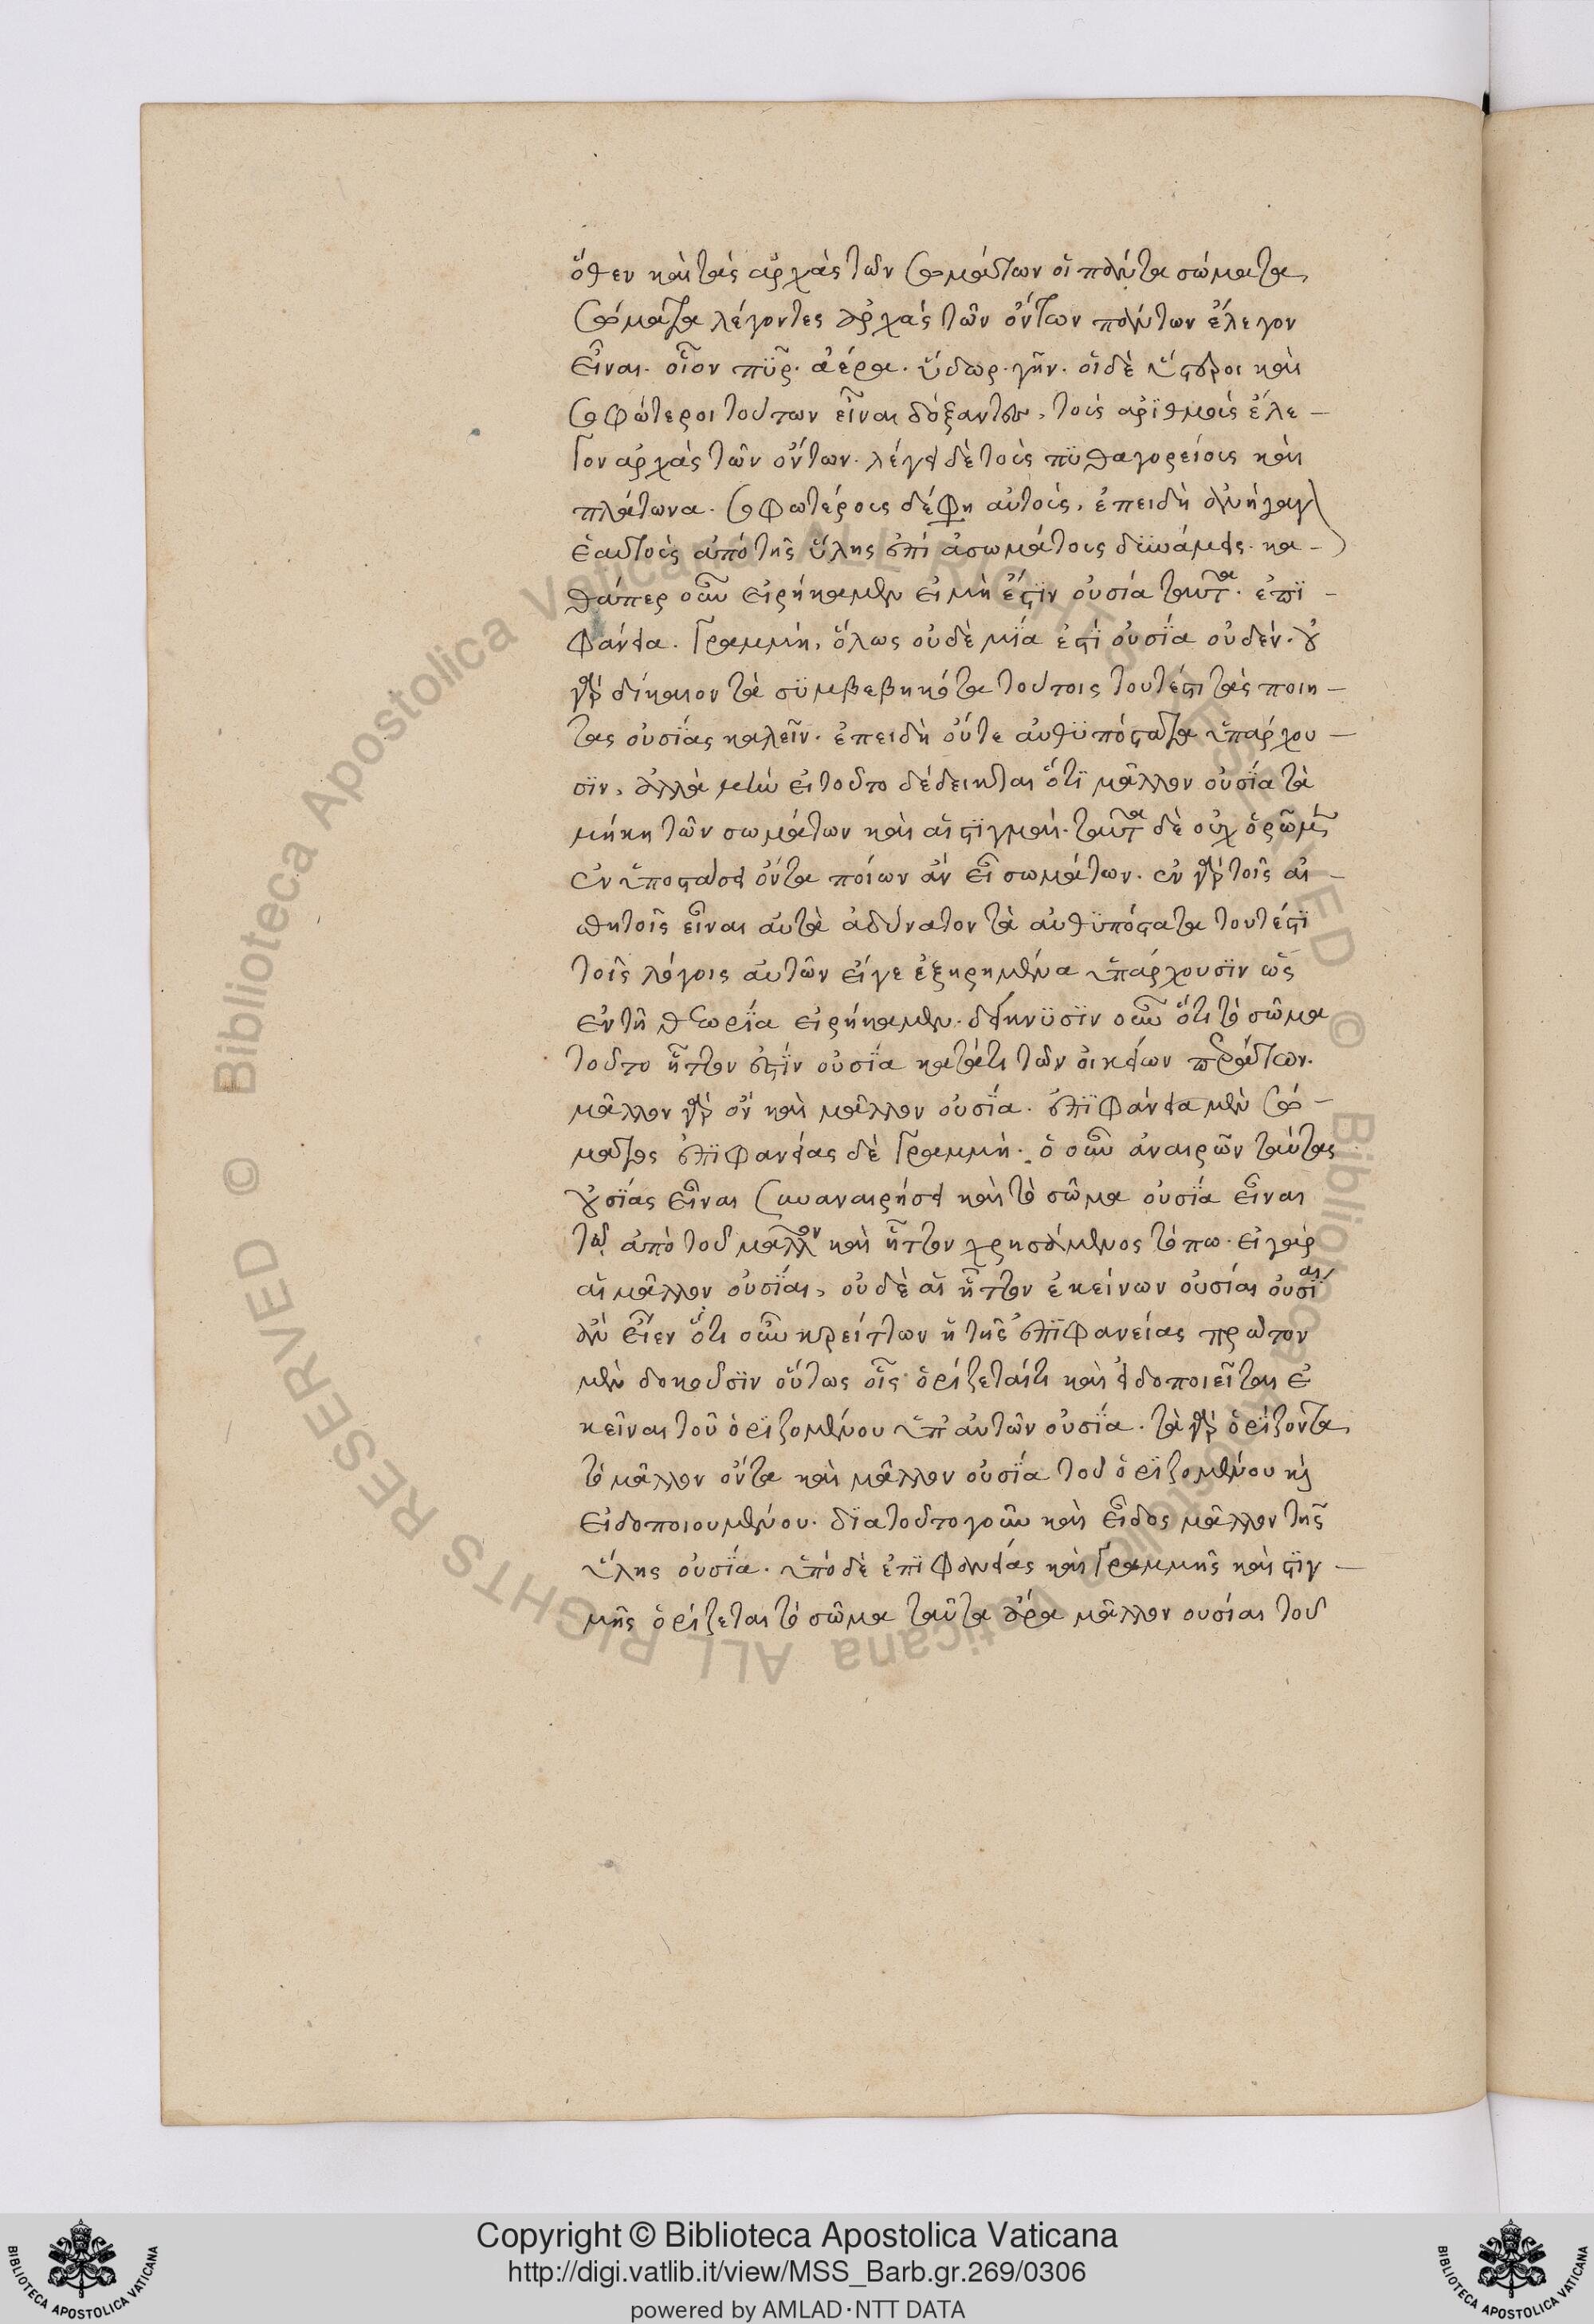 ὅθεν καὶ τὰς ἀρχὰς τῶν σωμάτων οἱ πάντα σώματα,
σώματα λέγοντες ἀρχὰς τῶν ὄντων πάντων ἔλεγον
εἶναι. οἷον πῦρ. ἀέρα. ὕδωρ. γῆν. οἱ δὲ ὕστεροι καὶ
σοφώτεροι τούτων εἶναι δόξαντες, τοὺς ἀρϊθμοὺς ἔλε-
γον ἀρχὰς τῶν ὄντων. λέγει δὲ τοὺς πϋθαγορείους καὶ
πλάτωνα. σοφωτέρους δέ φη αὐτοὺς, ἐπειδὴ ἀνήγαγ
ἑαυτοὺς ἀπὸ τῆς ὕλης ἐπὶ ἀσωμάτους δϋνάμεις. κα-
θάπερ οὖν εἰρήκαμεν εἰ μὴ ἔστϊν οὐσία ταῦτα. ἐπϊ-
φάνεια. γραμμὴ, ὅλως οὐδὲ μϊά ἐστὶ οὐσϊα οὐδέν. οὐ
γὰρ δίκαιον τὰ σϋμβεβηκότα τούτοις τουτέστι τὰς ποιη-
τας οὐσϊας καλεῖν. ἐπειδὴ οὔτε αὐθϋπόστατα ὑπάρχου-
σϊν, ἀλλὰ μὴν εἰ τοῦτο δέδεικται ὅτϊ μᾶλλον οὐσϊα τὰ
μήκη τῶν σωμάτων καὶ αἱ στϊγμαὶ. ταῦτα δὲ οὐχ ὁρῶμεν
ἐν ὑποστάσει ὄντα ποίων ἀν εἶ σωμάτων. ἐν γὰρ τοῖς αἰ-
σθητοῖς εἶναι αὐτὰ ἀδύνατον τὰ αὐθϋπόστατα τουτέστϊ
τοῖς λόγοις αὐτῶν εἴγε ἐξηρημένα ὑπάρχουσϊν ὡς
ἐν τῆ θεωρϊα εἰρήκαμεν. δεικνϋσϊν οὖν ὅτι τὸ σῶμα
τοῦτο ἧττον ἐστϊν οὐσϊα κατάτι τῶν οἰκείων περάτων.
μᾶλλον γὰρ ὂν καὶ μᾶλλον οὐσϊα. ἐπϊφάνεια μὲν σώ-
ματος ἐπϊφανείας δὲ γραμμή. ὁ οὖν ἀναιρῶν ταύτας
οὐσϊας εἶναι συναναιρήσει καὶ τὸ σῶμα οὐσϊα εἶναι
τῶ ἀπὸ τοῦ μᾶλλον καὶ ἧττον χρησάμενος τόπω. εἰ γὰρ
αἱ μᾶλλον οὐσϊαι, οὐδὲ αἱ ἧττον ἐκείνων οὐσίαι οὐσίαι
ἂν εἶεν ὅτι οὖν κρείττων ἡ τῆς ἐπϊφανείας πρῶτον
μὲν δοκοῦσϊν οὕτως οἷς ὁρίζεταίτι καὶ εἰδοποιεῖται ἐ
κεῖναι τοῦ ὁρϊζομένου ὑπ αὐτῶν οὐσϊα. τὰ γὰρ ὁρϊζοντα
τὸ μᾶλλον ὄντα καὶ μᾶλλον οὐσϊα τοῦ ὁρϊζομένου καὶ
εἰδοποιουμένου. δϊατοῦτο γοῦν καὶ εἶδος μᾶλλον τῆς
ὕλης οὐσϊα. ὑπὸ δὲ ἐπϊφανείας καὶ γραμμῆς καὶ στϊγ-
μῆς ὁρίζεται τὸ σῶμα ταῦτα ἄρα μᾶλλον ουσίαι τοῦ
Copyright © Biblioteca Apostolica Vaticana
http://digi.vatlib.it/view/MSS_Barb.gr.269/0306
powered by AMLAD·NTT DATA